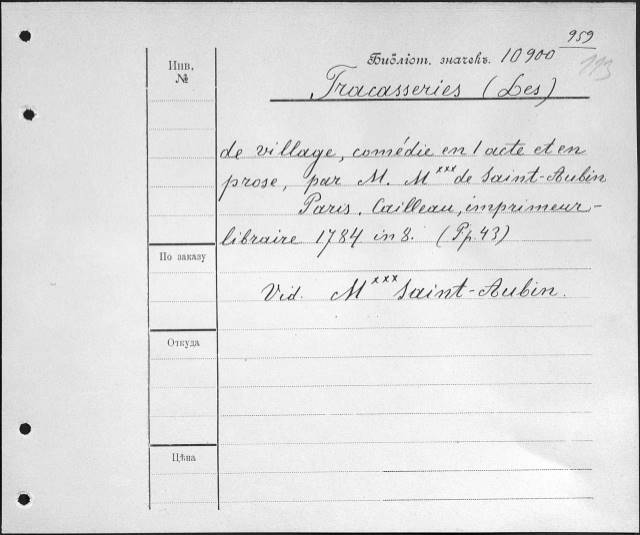 959
Библіот. значекъ. 10900
113
Инв.
№
Tracasseries (Les)
de village, comédie en 1 acte et en
prose, par M. Mˣˣˣ de Saint-Aubin
Paris. Cailleau, imprimeur-
libraire 1784 in 8. (Pp. 43)
По заказу
Vid. Mˣˣˣ Saint-Aubin.
Откуда
Цѣна